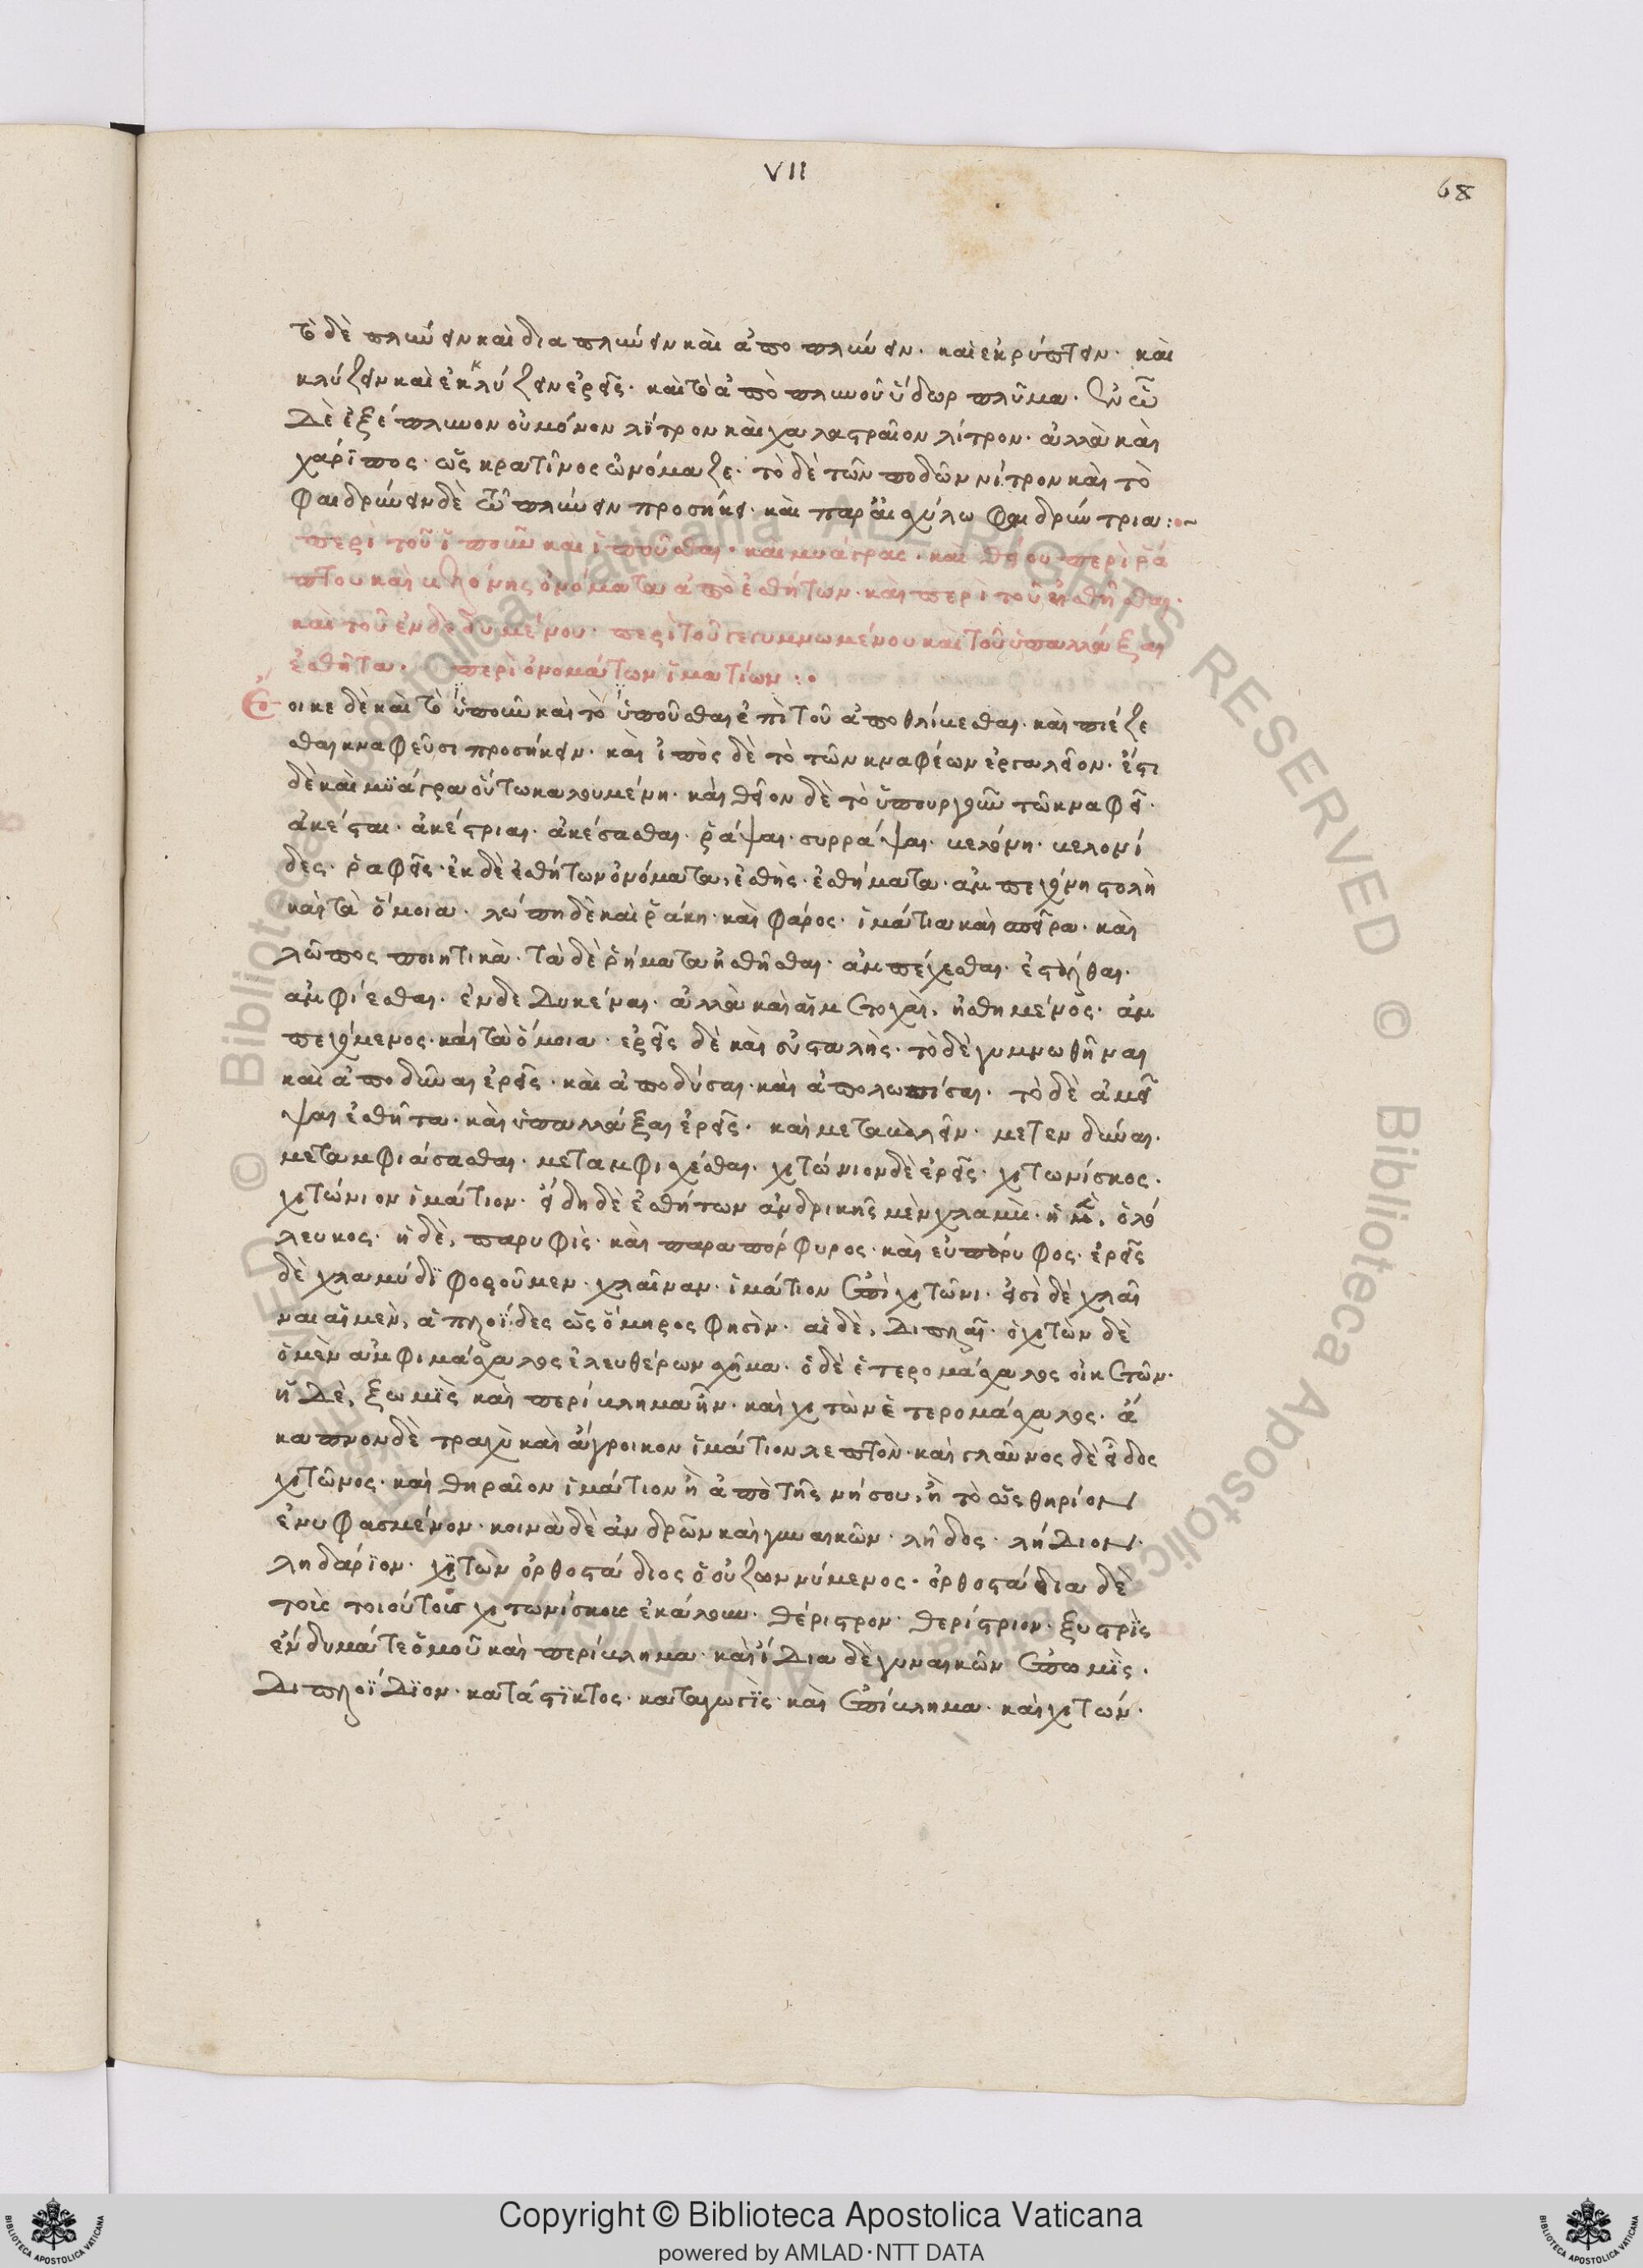 VII
68
τὸ δὲ πλύνειν καὶ διαπλύνειν καὶ ἀποπλύνειν. καὶ ἐκρύπτειν. καὶ
κλύζειν καὶ ἐκκλύζειν ἐρεῖς. καὶ τὸ ἀπὸ πλυνοῦ ὕδωρ πλῦμα.
δὲ ἐξέπλυνον οὐ μόνον λίτρον καὶ χαλαστραῖον λίτρον. ἀλλὰ καὶ
χαρίπος. ὡς κρατῖνος ὠνόμαζε. τὸ δὲ τῶν ποδῶν νίτρον καὶ τὸ
φαιδρύνειν δὲ τῷ πλύνειν προσήκει. καὶ παρ' αἰσχύλω φαιδρύντρια:~
περὶ τοῦ ἰποῦν καὶ ἰποῦσθαι. καὶ μυάγρας. καὶ θείου περὶ ῥά
πτου καὶ βελόνης ὀνόματα ἀπὸ ἐσθήτων. καὶ περὶ τοῦ ἠσθῆσθαι.
καὶ τοῦ ἐνδεδυμένου. περὶ τοῦ γεγυμνωμένου καὶ τοῦ ὑπαλλάξαι
ἐσθῆτα. περὶ ὀνομάτων ἱματίων:.
Ἔοικε δὲ καὶ τὸ ὑποῦν καὶ τὸ ὑποῦσθαι ἐπὶ τοῦ ἀποθλίβεσθαι. καὶ πιέζε
σθαι κναφεῦσι προσήκειν. καὶ ἰπὸς δὲ τὸ τῶν κναφέων ἐργαλεῖον. ἔστι
δὲ καὶ μυάγρα οὕτω καλουμένη. καὶ θεῖον δὲ τὸ ὑπουργοῦν τῶ κναφεῖ.
ἀκέσται. ἀκέστριαι. ἀκέσασθαι. ῥάψαι. συρράψαι. βελόνη. βελονί
δες. ῥαφεῖς. ἐκ δὲ ἐσθήτων ὀνόματα, ἐσθής. ἐσθήματα. ἀμπεχόνη στολὴ
καὶ τὰ ὅμοια. λώπη δὲ καὶ ῥάκη. καὶ φάρος. ἱμάτια καὶ σπεῖρα. καὶ
λῶπος ποιητικά. τὰ δὲ ῥήματα ἠσθῆσθαι. ἀμπέχεσθαι. ἐστάλθαι.
ἀμφιέσθαι. ἐνδεδυκέναι. ἀλλὰ καὶ αἱ μετοχαὶ, ἠσθημένος. ἀμ
πεχόμενος. καὶ τὰ ὅμοια. ἐρεῖς δὲ καὶ εὐσταλής. τὸ δὲ γυμνωθῆναι
καὶ ἀποδῦναι ἐρεῖς. καὶ ἀποδύσαι. καὶ ἀπολωπίσαι. τὸ δὲ ἀμεῖ
ψαι ἐσθῆτα. καὶ ὑπαλλάξαι ἐρεῖς. καὶ μεταβαλεῖν. μετενδύναι.
μεταμφιάσασθαι. μεταμφισχέσθαι. χιτώνιον δὲ ἐρεῖς. χιτωνίσκος.
χιτώνιον ἱμάτιον. εἴδη δὲ ἐσθήτων ἀνδρικῆς μὲν χλαμὺς. ἡ μὲν, ὁλό
λευκος. ἡ δὲ, παρυφὶς. καὶ παραπόρφυρος. καὶ εὐπάρυφος. ἐρεῖς
δὲ χλαμύδι φοροῦμεν. χλαῖναν. ἱμάτιον ἐπὶ χιτῶνι. εἰσὶ δὲ χλαῖ
ναι αἱ μὲν, ἁπλοΐδες ὡς ὅμηρος φησὶν. αἱ δὲ, διπλαῖ. ὁ χιτὼν δὲ
ὁ μὲν ἀμφιμάσχαλος ἐλευθέρων σχῆμα. ὁ δὲ ἑτερομάσχαλος οἰκετῶν.
ἡ δὲ, ξωμὶς καὶ περίβλημα ἦν. καὶ χιτὼν ἑτερομάσχαλος. ἄ
καπνον δὲ τραχὺ καὶ ἄγροικον ἱμάτιον λεπτὸν. καὶ γλαῦνος δὲ εἶδος
χιτῶνος. καὶ θηραῖον ἱμάτιον ἢ ἀπὸ τῆς νήσου, ἢ τὸ ὡς θηρίον
ἐνυφασμένον. κοινὰ δὲ ἀνδρῶν καὶ γυναικῶν. λῆδος. λήδιον.
ληδάριον. χιτὼν ὀρθοστάδιος ὁ οὐ ζωννύμενος. ὀρθοστάδια δὲ
τοὺς τοιούτοις χιτωνίσκους ἐκάλουν. θέριστρον. θερίστριον. ξυστρὶς
ἐνδυμά τε ὁμοῦ καὶ περίβλημα. καὶ ἴδια δὲ γυναικῶν ἐπωμὶς.
διπλοΐδιον. κατάστικτος. καταγωγὶς. καὶ ἐπίβλημα. καὶ χιτών.
Copyright © Biblioteca Apostolica Vaticana
powered by AMLAD·NTT DATA